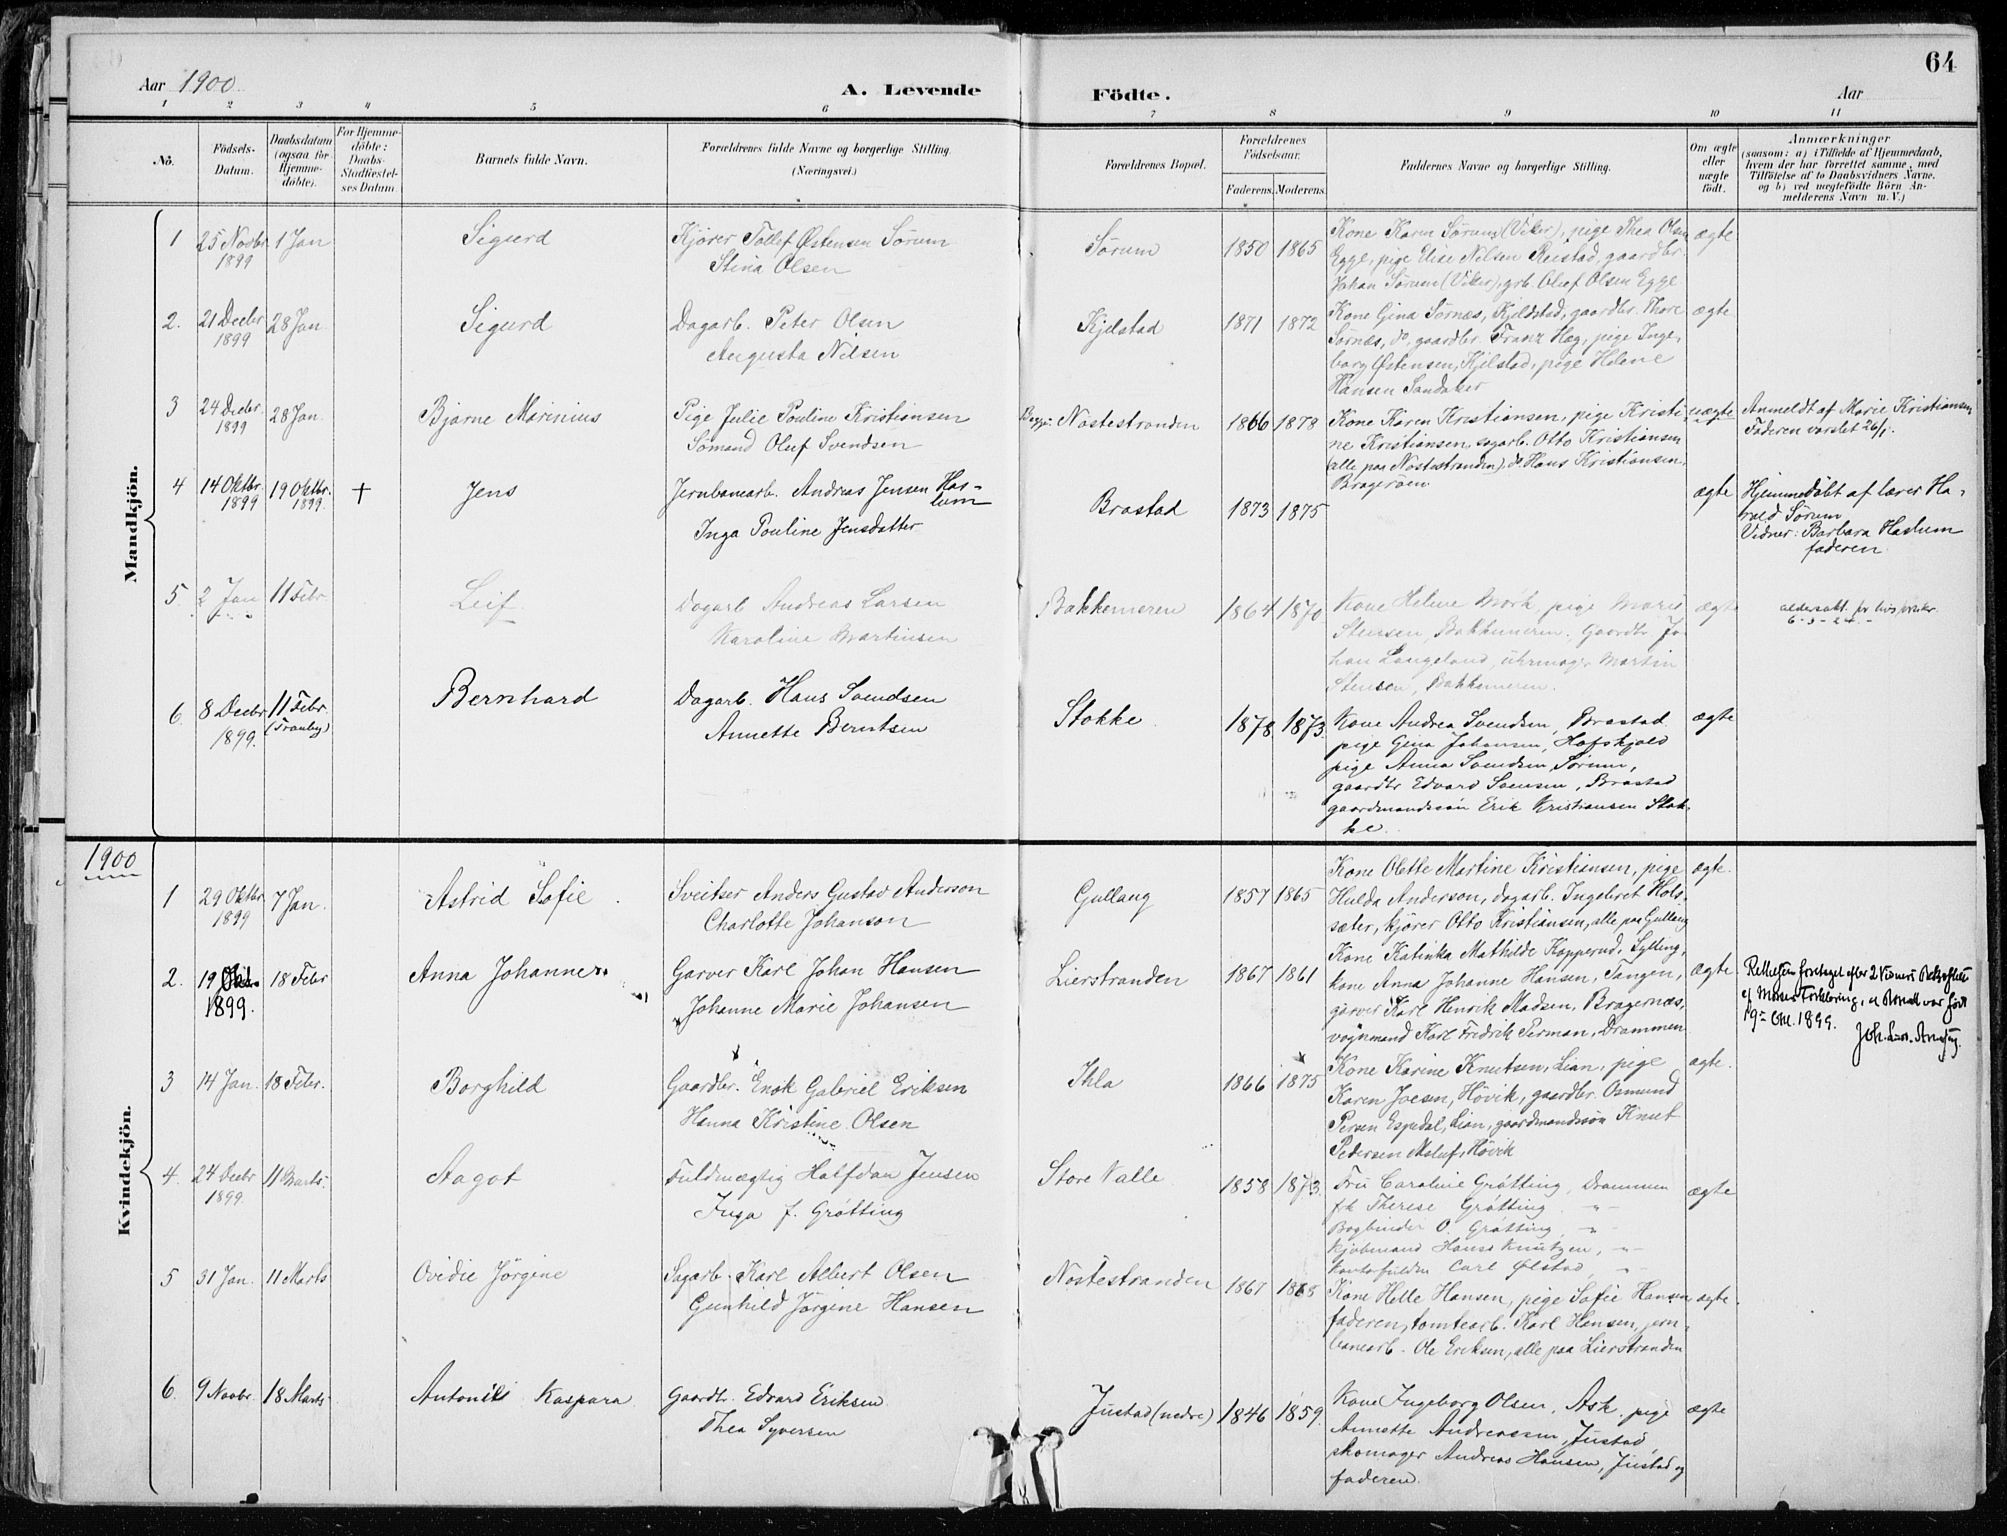 64
Aar 1900
A. Levende
Födte.
Aar
1 2 3 4 5 6 7 8 9 10 11
No.
Födsels-
Datum.
Daabsdatum
(ogsaa for
Hjemme-
döbte).
For Hjemme-
döbte:
Daabs-
Stadfæstel-
ses Datum.
Barnets fulde Navn.
Forældrenes fulde Navne og borgerlige Stilling
(Næringsvei.)
Forældrenes Bopæl.
Forældrenes
Födselsaar.
Faderens. Moderens.
Faddernes Navne og borgerlige Stilling.
Om ægte
eller
uægte
födt.
Anmærkninger
(saasom: a) i Tilfælde af Hjemmedaab,
hvem der har forrettet samme, med
Tilföielse af to Daabsvidners Navne.
og b) ved uægtefödte Börn An-
melderens Navn m. V.)
Mandkjön.
1 25 Novbr 1899 1 Jan Sigurd
Kjører Tollef Østensen Sørum
Stina Olsen
Sørum 1850 1865
Kone Karen Sørum (Viker), pige Thea Olsen
Egge, pige Elise Nilsen Reistad, gaardbr.
Johan Sørum (Viker), grb. Oluf Olsen Egge
ægte
2. 21 Decbr 1899 28 Jan. Sigurd
Dagarb. Peter Olsen
Augusta Nilsen
Kjelstad 1871 1872
Kone Gina Sørnæs, Kjeldstad, gaardbr. Thore
Sørnæs, do, gaardbr. Franz Hæg, pige Inge-
borg Østensen, Kjelstad, pige Helene
Hansen Sandaker
ægte
3 24 Decbr. 1899 28 Jan. Bjarne Marinius
Pige Julie Pouline Kristiansen
Sömand Oluf Svendsen
Nøstestranden 1866 1878
Kone Karen Kristiansen, pige Kristi-
ne Kristiansen, sagarb. Otto Kristiansen
(alle paa Nøstestranden), do. Hans Kristiansen,
Bragerøen
uægte
Anmeldt af Marie Kristiansen
Faderen varslet 26/1.
4 14 Oktbr. 1899 19 Oktbr. 1899. + Jens
Jernbanearb. Andreas Jensen Has-
lum
Inga Pouline Jensdatter
Brastad 1873 1875
ægte
Hjemmedøbt af lærer Ha-
rald Sørum
Vidner: Barbara Haslum
faderen
5. 2 Jan 11 Febr Leif
Dagarb Andreas Larsen
Karoline Martinsen
Bakkemeren 1864 1870
Kone Helene Mörk, pige Marie
Stensen, Bakkemeren. Gaardbr Jo-
han Langeland, uhrmager Martin
Stensen, Bakkemeren.
ægte
6-3-24.
6. 8 Decbr 1899. 11 Febr (Tranby) Bernhard
Dagarb. Hans Svendsen
Annette Berntsen
Stokke 1878 1873.
Kone Andrea Svendsen, Brastad
pige Gina Johansen, Hafskjold
pige Anna Svendsen, Sørum,
gaardbr Edvard Svensen, Brastad
gaardmandssøn Erik Kristiansen Stok-
ke.
ægte
1900
Kvindekjön.
1 29 Oktbr 1899 7 Jan. Astrid Sofie
Sveitser Anders Gustav Anderson
Charlotte Johanson
Gullaug 1857 1865
Kone Olette Martine Kristiansen, pige
Hulda Anderson, dagarb. Ingebret Hols-
sæter, kjører Otto Kristiansen, alle paa Gullaug
ægte.
2. 19 1899. 18 Febr Anna Johanne
Garver Karl Johan Hansen
Johanne Marie Johansen
Lierstranden 1867 1861
Kone Katinka Mathilde Kopperud, Sylling,
kone Anna Johanne Hansen, Tangen,
garver Karl Henrik Madsen, Bragernæs,
vognmand Karl Fredrik Perman, Drammen
ægte
3 14 Jan. 18 Febr. Borghild
Gaardbr. Enok Gabriel Eriksen
Hanna Kristine Olsen
Ihla 1866 1875
Kone Karine Knutsen, Lian, pige
Karen Joesen, Høvik, gaardbr. Osmund
Persen Espedal, Lian, gaardmandssøn Knut
Pedersen Høvik
ægte.
4. 24 Decbr 1899. 11 Marts. Aagot
Fuldmægtig Halfdan Jensen
Inga f. Grøtting
Store Valle 1858 1873.
Fru Caroline Grøtting, Drammen
frk Therese Grøtting
Bogbinder O. Grøtting
Kjøbmand Hans Knutzen,
Carl Ølstad
ægte
5 31 Jan. 11 Marts Ovidie Jørgine
Sagarb. Karl Albert Olsen
Gunhild Jørgine Hansen
Nøstestranden 1867 1868
Kone Helle Hansen, pige Sofie Hansen
faderen, tomtearb. Karl Hansen, jern-
banearb. Ole Eriksen, alle paa Lierstranden
ægte.
6. 9 Novbr. 18 Marts Kaspara
Gaardbr. Edvard Eriksen
Thea Syversen
Justad (nedre) 1846 1859.
Kone Ingeborg Olsen, Ask, pige
Annette Andreassen, Justad
skomager Andreas Hansen, Justad og
faderen.
ægte